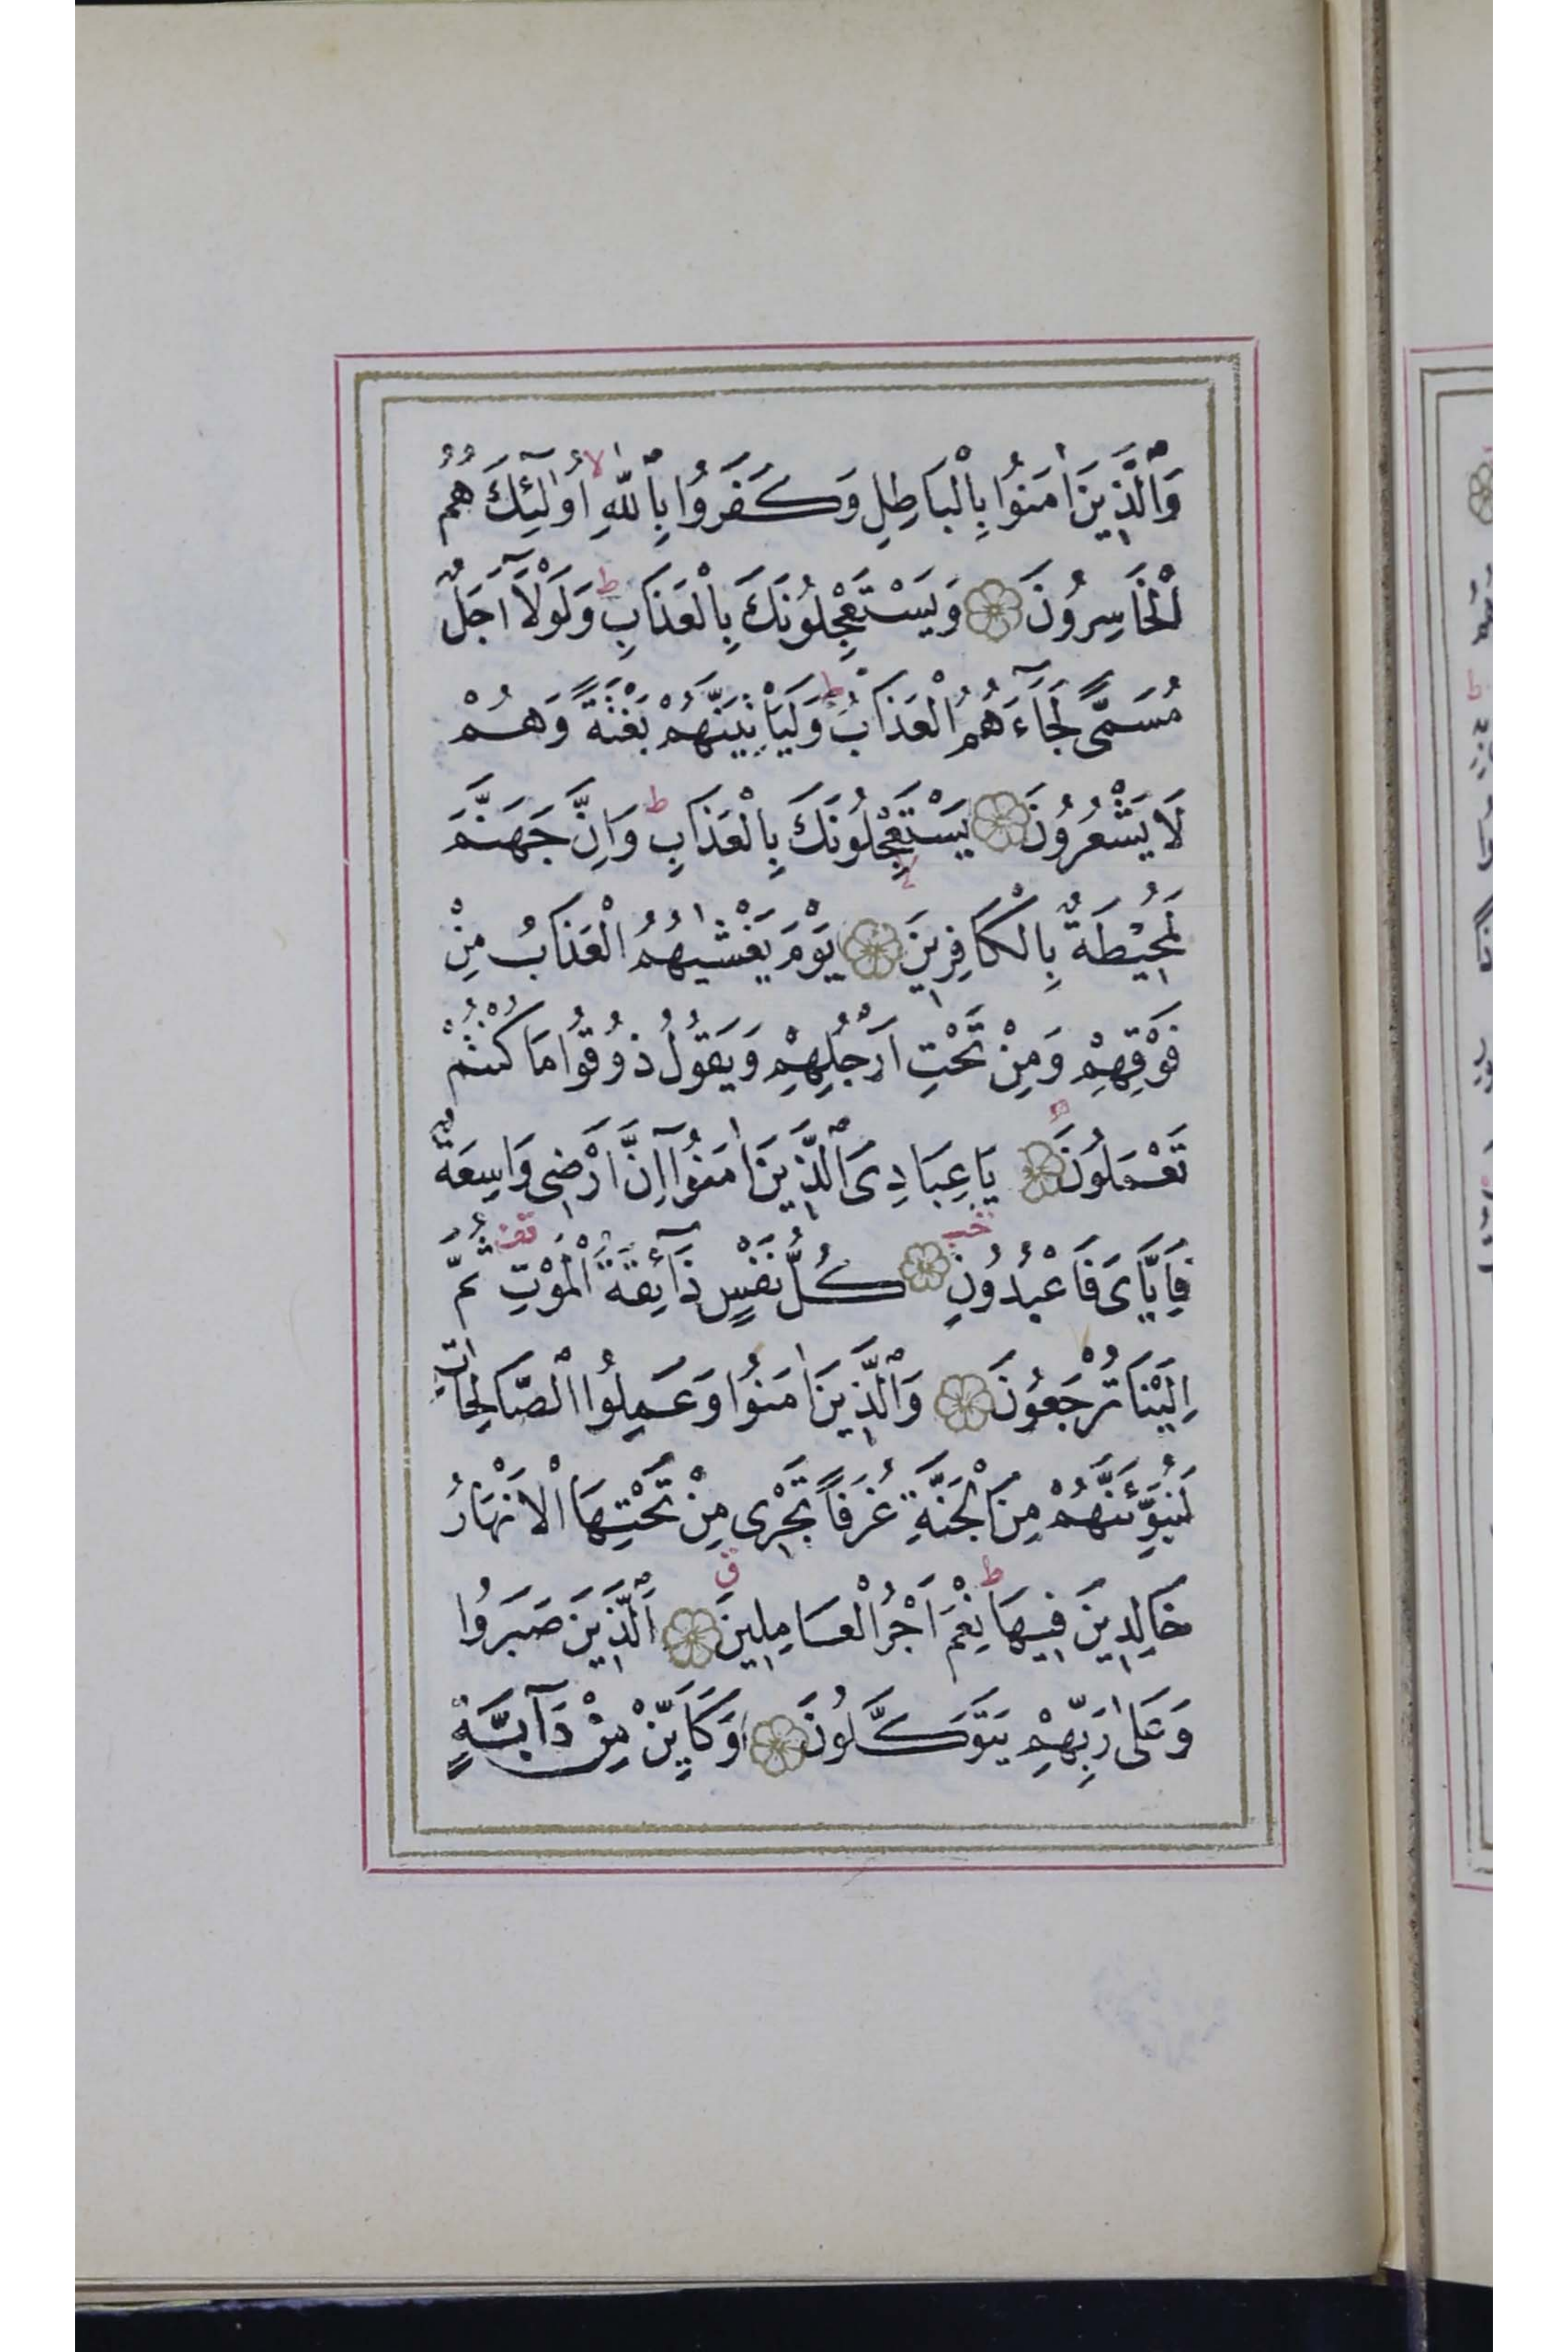 وَالَّذِينَ اٰمَنُوا بِالْبَاطِلِ وَكَفَرُوا بِاللّٰهِ ۙ اُولٰٓئِكَ هُمُ
الْخَاسِرُونَ وَيَسْتَعْجِلُونَكَ بِالْعَذَابِ ؕ وَلَوْلَٓا اَجَلٌ
مُسَمًّى لَجَٓاءَهُمُ الْعَذَابُ ؕ وَلَيَأْتِيَنَّهُمْ بَغْتَةً وَهُمْ
لَا يَشْعُرُونَ يَسْتَعْجِلُونَكَ بِالْعَذَابِ ؕ وَاِنَّ جَهَنَّمَ
لَمُحِيْطَةٌ بِالْكَافِرِينَ يَوْمَ يَغْشٰيهُمُ الْعَذَابُ مِنْ
فَوْقِهِمْ وَمِنْ تَحْتِ اَرْجُلِهِمْ وَيَقُولُ ذُوقُوا مَا كُنْتُمْ
تَعْمَلُونَ يَا عِبَادِىَ الَّذِينَ اٰمَنُوٓا اِنَّ اَرْضِى وَاسِعَةٌ
فَاِيَّاىَ فَاعْبُدُونِ كُلُّ نَفْسٍ ذَٓائِقَةُ الْمَوْتِ ثُمَّ
اِلَيْنَا تُرْجَعُونَ وَالَّذِينَ اٰمَنُوا وَعَمِلُوا الصَّالِحَاتِ
لَنُبَوِّئَنَّهُمْ مِنَ الْجَنَّةِ غُرَفًا تَجْرِى مِنْ تَحْتِهَا الْاَنْهَارُ
خَالِدِينَ فِيهَا ؕ نِعْمَ اَجْرُ الْعَامِلِينَ اَلَّذِينَ صَبَرُوا
وَعَلٰى رَبِّهِمْ يَتَوَكَّلُونَ وَكَاَيِّنْ مِنْ دَٓابَّةٍ